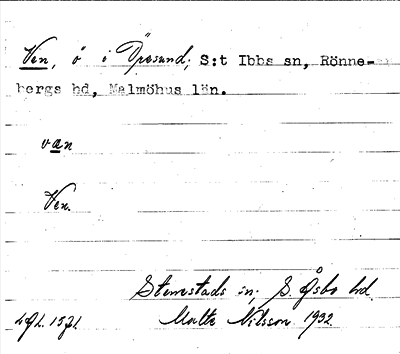 Ven, ö i Öresund; S:t Ibbs sn, Rönne-
bergs hd, Malmöhus län.
van
Ven.
Stenestads sn; S. Åsbo hd.
Malte Nilsson 1932.